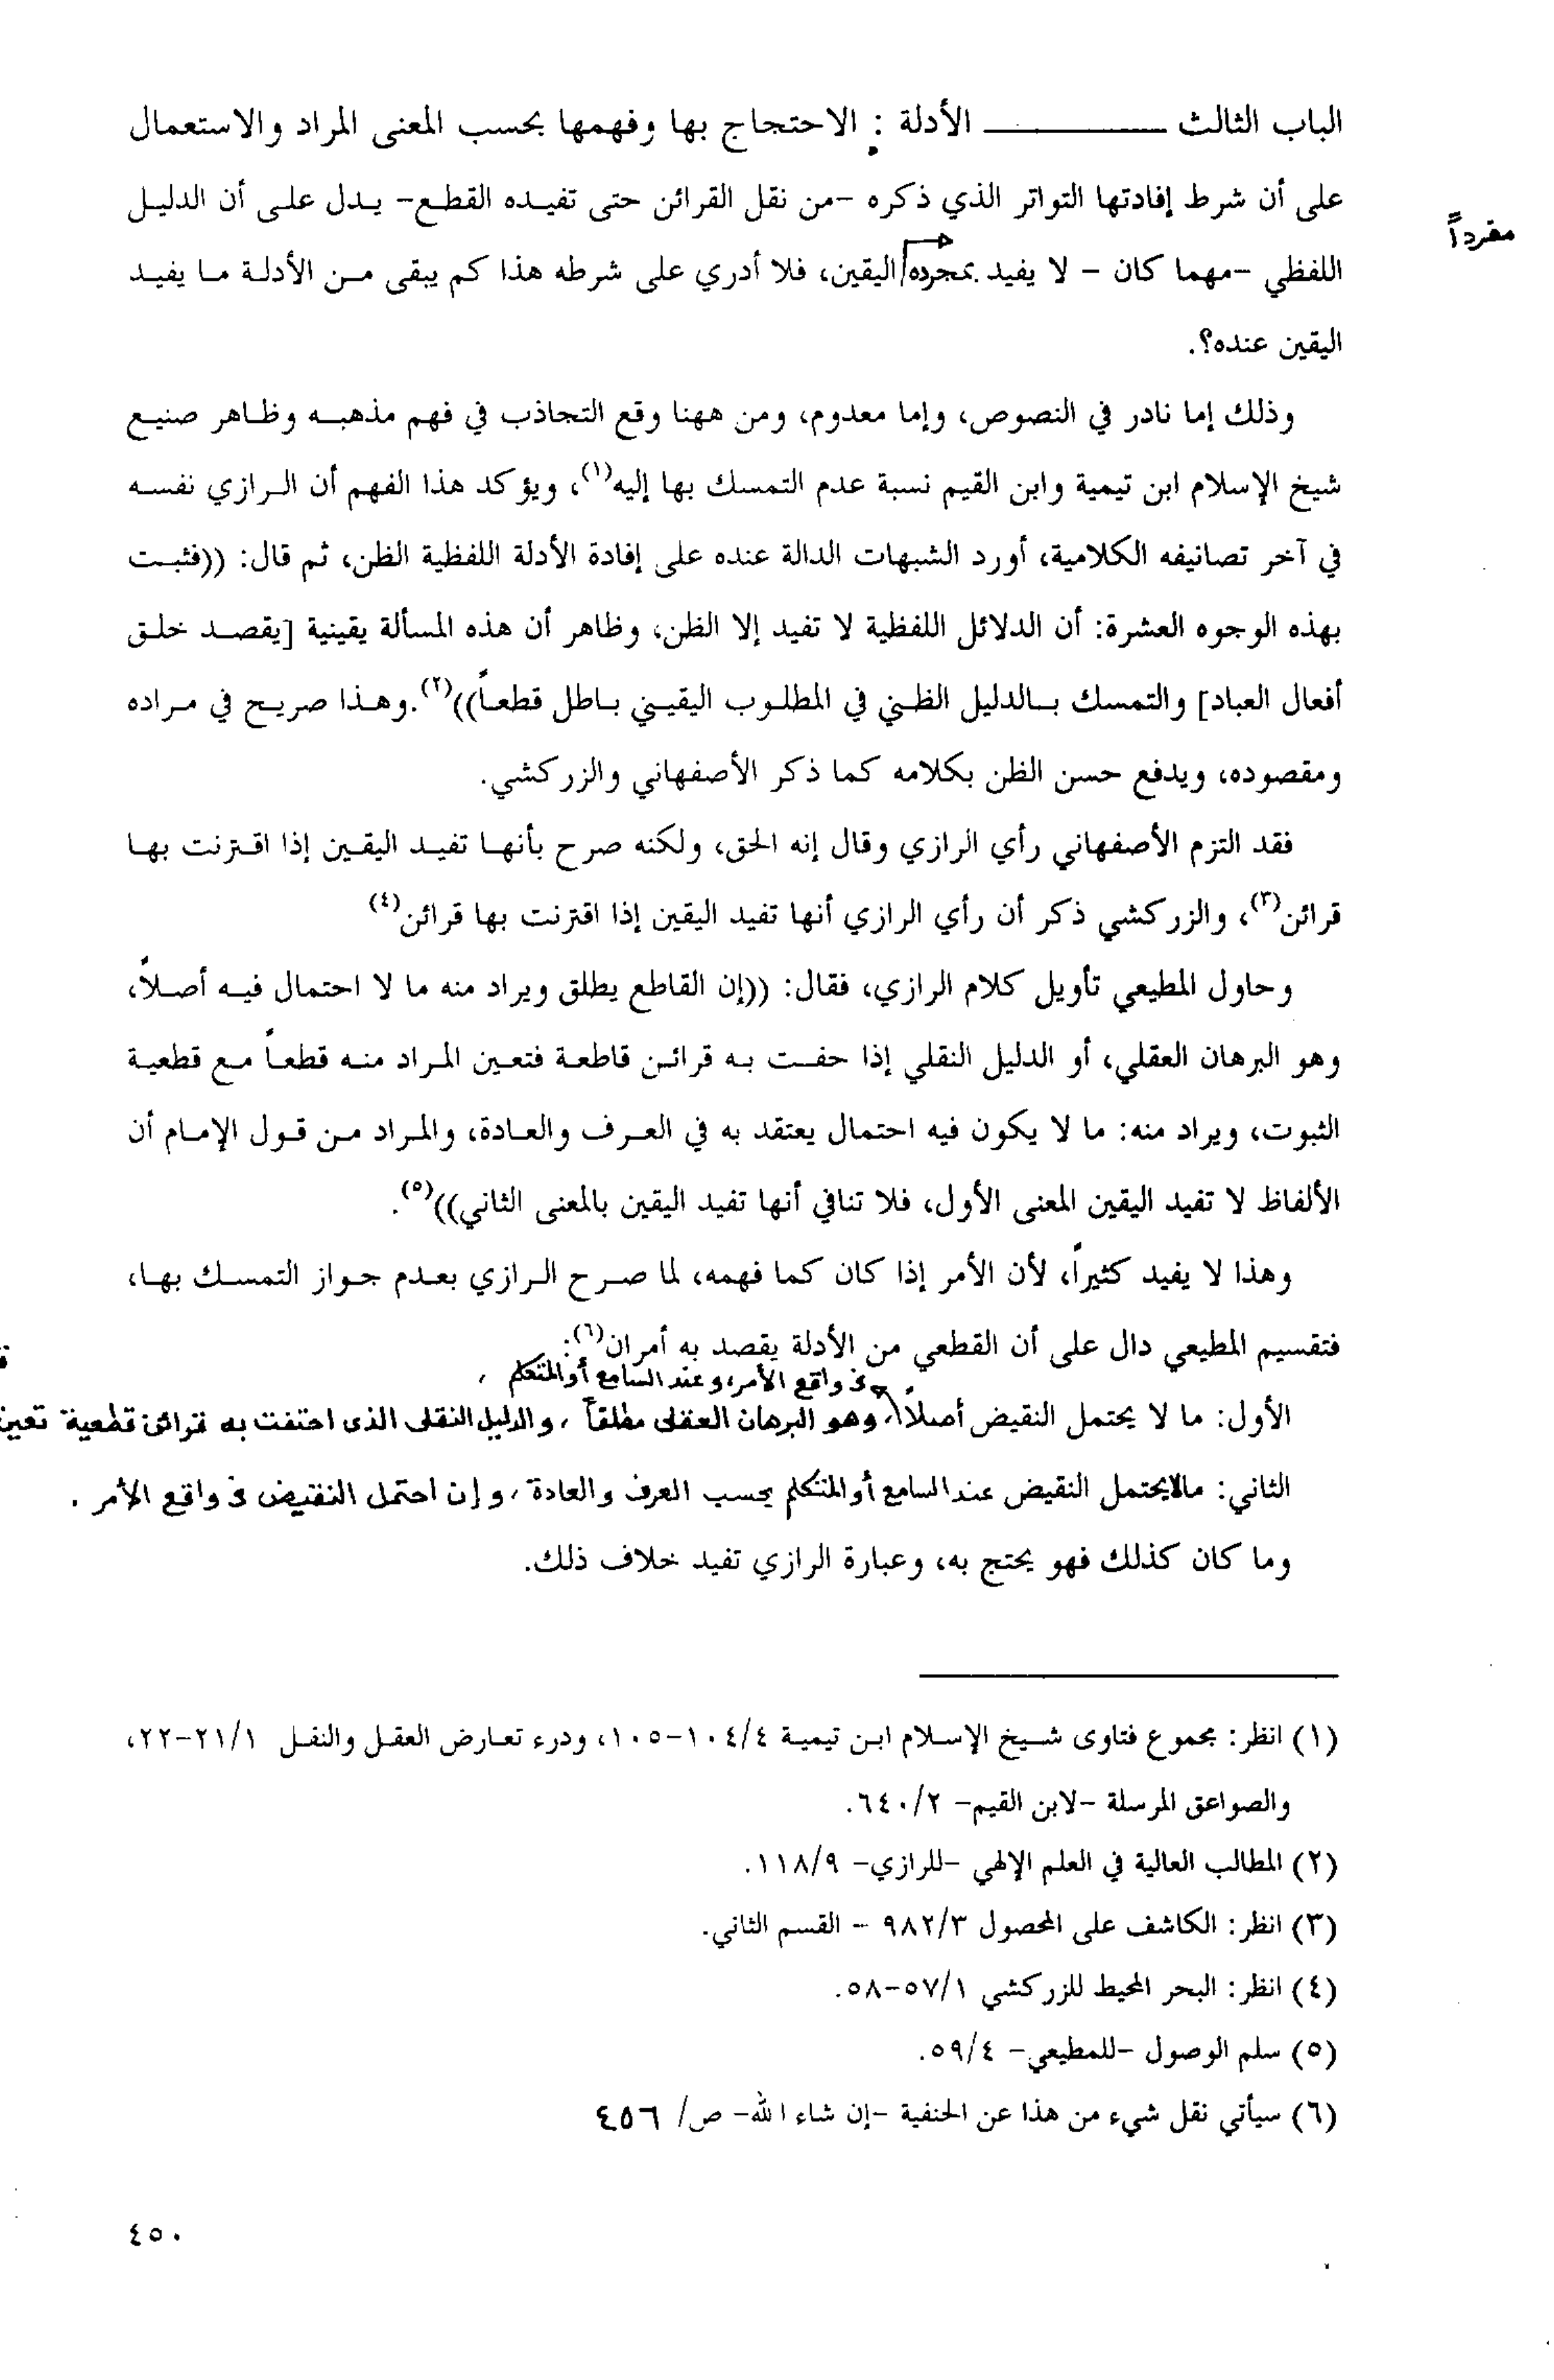 الباب الثالث ــــــــــــ الأدلة : الاحتجاج بها وفهمها بحسب المعنى المراد والاستعمال
على أن شرط إفادتها التواتر الذي ذكره -من نقل القرائن حتى تفيده القطع- يدل على أن الدليل
مفرداً
اللفظي -مهما كان - لا يفيد بمجرده اليقين، فلا أدري على شرطه هذا كم يبقى من الأدلة ما يفيد
اليقين عنده؟.
وذلك إما نادر في النصوص، وإما معدوم، ومن ههنا وقع التجاذب في فهم مذهبه وظاهر صنيع
شيخ الإسلام ابن تيمية وابن القيم نسبة عدم التمسك بها إليه(١)، ويؤكد هذا الفهم أن الرازي نفسه
في آخر تصانيفه الكلامية، أورد الشبهات الدالة عنده على إفادة الأدلة اللفظية الظن، ثم قال: ((فثبت
بهذه الوجوه العشرة: أن الدلائل اللفظية لا تفيد إلا الظن، وظاهر أن هذه المسألة يقينية [يقصد خلق
أفعال العباد] والتمسك بالدليل الظني في المطلوب اليقيني باطل قطعاً))(٢).وهذا صريح في مراده
ومقصوده، ويدفع حسن الظن بكلامه كما ذكر الأصفهاني والزركشي.
فقد التزم الأصفهاني رأي الرازي وقال إنه الحق، ولكنه صرح بأنها تفيد اليقين إذا اقترنت بها
قرائن(٣)، والزركشي ذكر أن رأي الرازي أنها تفيد اليقين إذا اقترنت بها قرائن(٤)
وحاول المطيعي تأويل كلام الرازي، فقال: ((إن القاطع يطلق ويراد منه ما لا احتمال فيه أصلاً،
وهو البرهان العقلي، أو الدليل النقلي إذا حفت به قرائن قاطعة فتعين المراد منه قطعاً مع قطعية
الثبوت، ويراد منه: ما لا يكون فيه احتمال يعتقد به في العرف والعادة، والمراد من قول الإمام أن
الألفاظ لا تفيد اليقين المعنى الأول، فلا تنافي أنها تفيد اليقين بالمعنى الثاني))(٥).
وهذا لا يفيد كثيراً، لأن الأمر إذا كان كما فهمه، لما صرح الرازي بعدم جواز التمسك بها،
فتقسيم المطيعي دال على أن القطعي من الأدلة يقصد به أمران(٦):
في واقع الأمر، وعند السامع أو المتكلم ،
الأول: ما لا يحتمل النقيض أصلاً، وهو البرهان العقلى مطلقاً ، والدليل النقلى الذى احتفت به قرائن قطعية تعين
الثاني: مالايحتمل النقيض عند السامع أو المتكلم بحسب العرف والعادة ، وإن احتمل النقيض فى واقع الأمر .
وما كان كذلك فهو يحتج به، وعبارة الرازي تفيد خلاف ذلك.
(١) انظر: مجموع فتاوى شيخ الإسلام ابن تيمية ١٠٤/٤-١٠٥، ودرء تعارض العقل والنقل ٢١/١-٢٢،
والصواعق المرسلة -لابن القيم- ٦٤٠/٢.
(٢) المطالب العالية في العلم الإلهي -للرازي- ١١٨/٩.
(٣) انظر: الكاشف على المحصول ٩٨٢/٣ - القسم الثاني.
(٤) انظر: البحر المحيط للزركشي ٥٧/١-٥٨.
(٥) سلم الوصول -للمطيعي- ٥٩/٤.
(٦) سيأتي نقل شيء من هذا عن الحنفية -إن شاء الله- ص/ ٤٥٦
٤٥٠